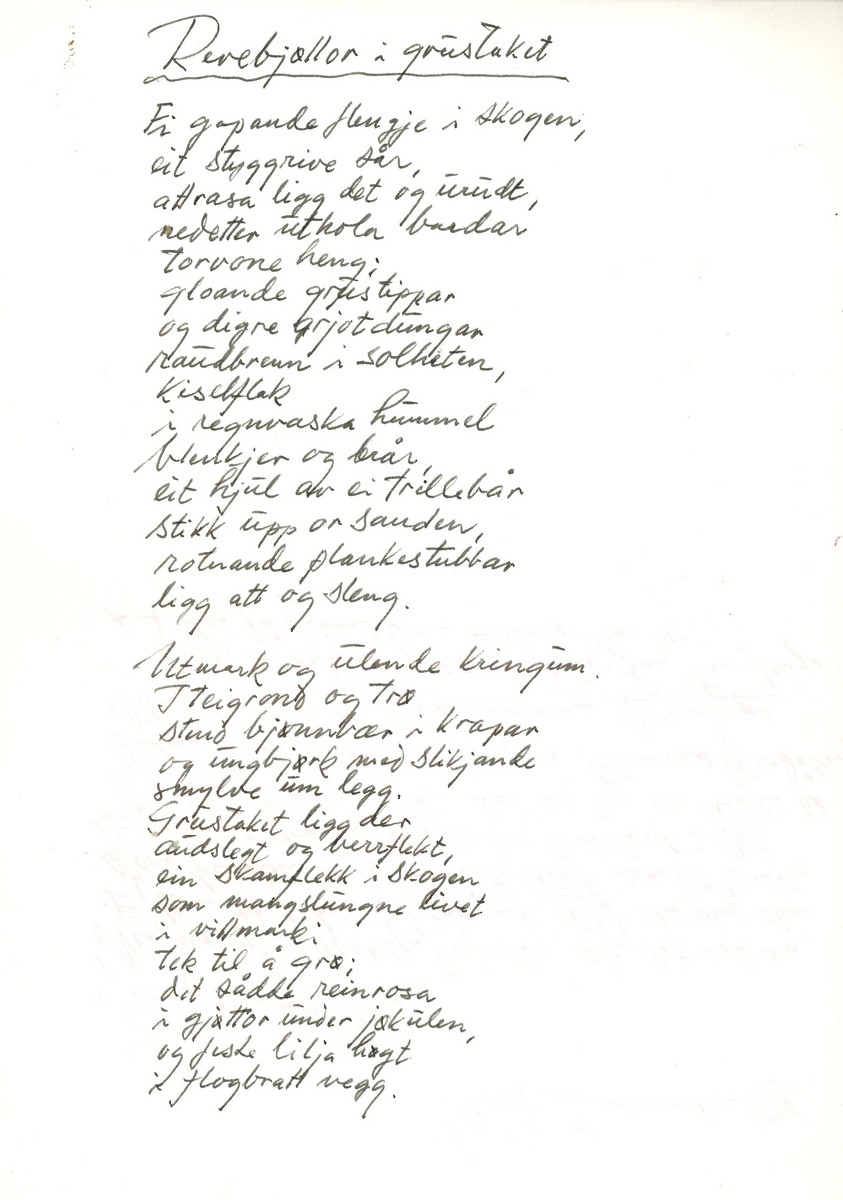 Revebjøllor i grustaket
Ei gapande flengje i skogen,
eit styggrive sår,
attrasa ligg det og urudt,
nedetter uthola bardar
torvone heng;
gloande grustippar
og digre grjotdungar
raudbrenn i solheten,
kiselflak
i regnvaska hummel
blenkjer og brår,
eit hjul av ei trillebår
stikk upp or sanden,
rotnande plankestubbar
ligg att og sleng.
Utmark og ulende kringum.
I teigrond og trø
stend bjønnbær i krapar
og ungbjørk med slikjande
smylve um legg.
Grustaket ligg der
audslegt og berrflekt,
ein skamflekk i skogen
som mangslungne livet
i villmarki
tek til å grø;
det sådde reinrosa
i gjøttor under jøkulen,
og feste lilja høgt
i flogbratt vegg.